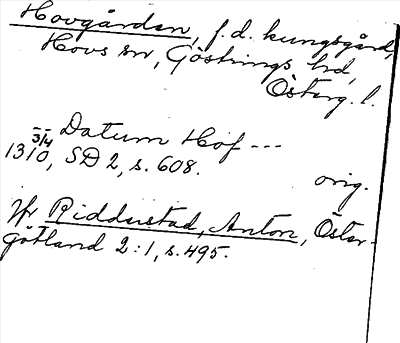 Hovgården, f.d. kungsgård,
Hovs sn, Göstrings hd,
Österg. l.
Datum Hof ---
1310 3/4, SD 2, s. 608.
orig.
Jfr Ridderstad, Anton, Öster-
götland 2:1, s. 495.